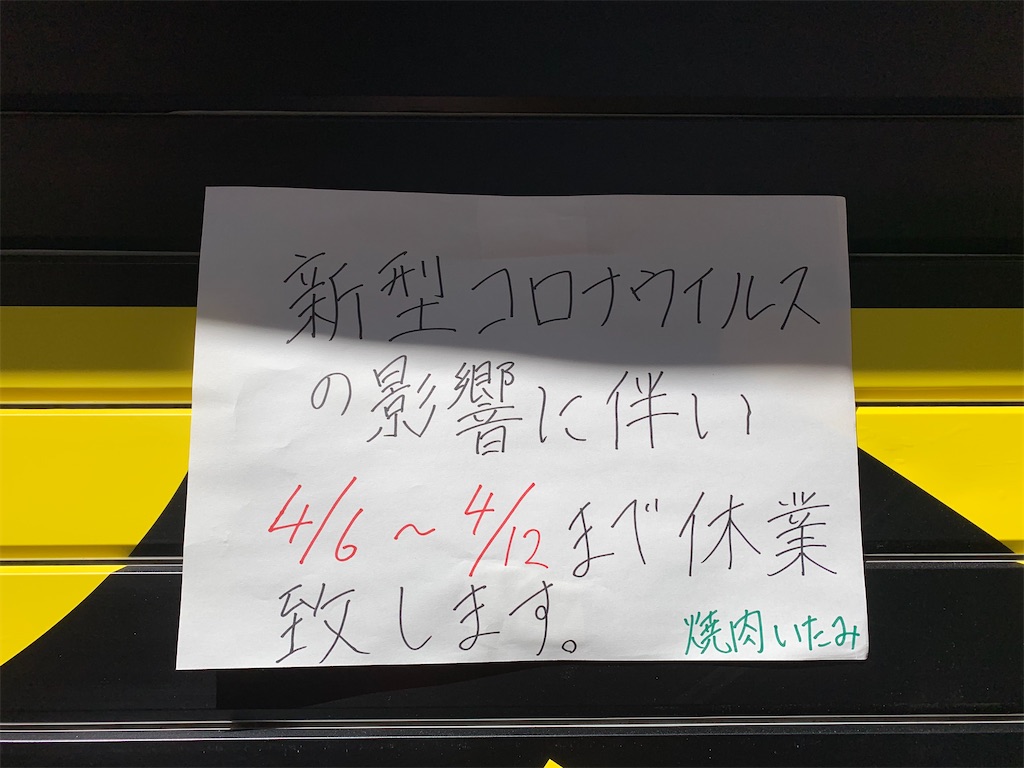 新型コロナウイルス
の影響に伴い
4/6～4/12まで休業
致します。
焼肉いたみ